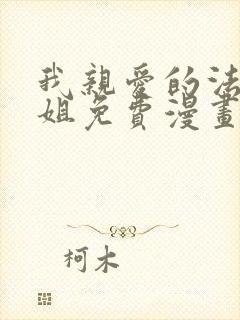 我親愛的法
姐免費漫畫
柯木